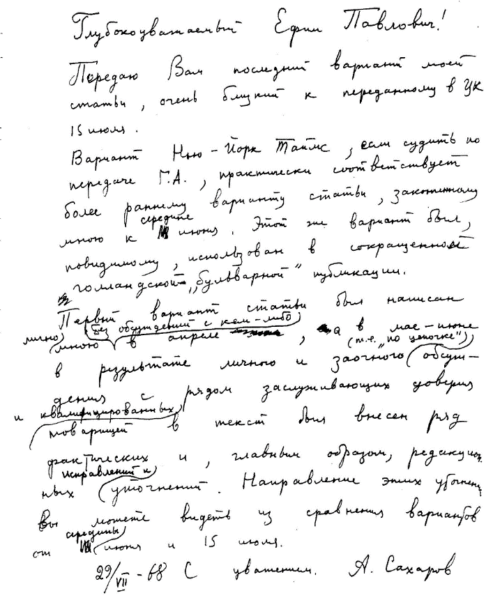 Глубокоуважаемый Ефим Павлович!
Передаю Вам последний вариант моей
статьи, очень близкий к переданному в ЦК
15 июля.
Вариант Нью-Йорк Таймс, если судить по
передаче Г.А., практически соответствует
более раннему варианту статьи, законченному
середине
мною к июня. Этот же вариант был,
повидимому, использован в сокращенной
голландской „бульварной" публикации.
Первый вариант статьи был написан
лично без обсуждений с кем-либо
мною в апреле, а в мае-июне
(т.е. „по цепочке")
в результате личного и заочного обсуж-
дения с рядом заслуживающих доверия
и квалифицированных
товарищей в текст был внесен ряд
фактических и, главным образом, редакцион-
исправлений и
ных уточнений. Направление этих уточнений
Вы можете видеть из сравнения вариантов
середины
от июня и 15 июля.
29/VII-68 С уважением. А. Сахаров